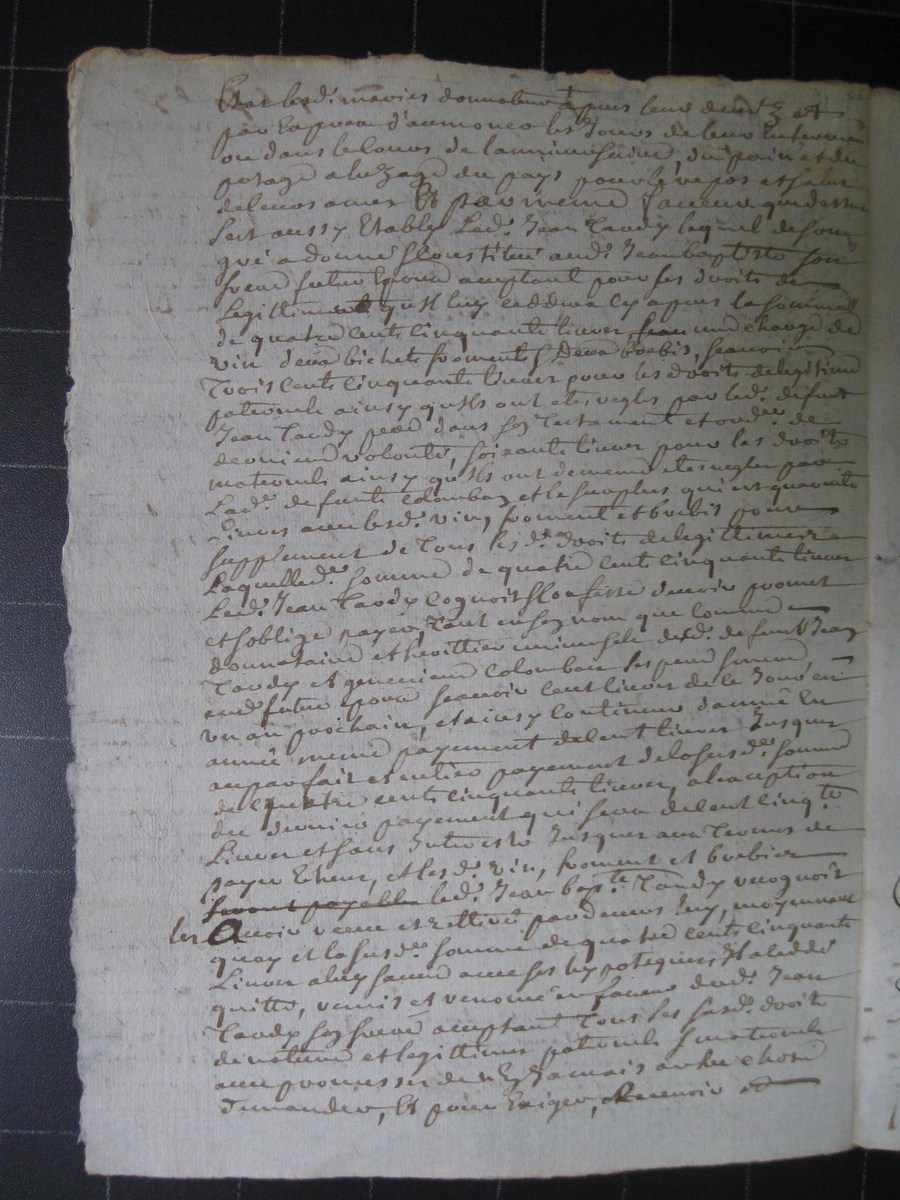 Et at lesd. mariés donnateurs apres leurs deceds et
par dessus d'aumones les jours de leur Enterrem
ou dans le cours de la neufvaine, du pain et du
potage a luzage du pays pour le repos et salut
de leurs ames Et par meme faveur que dessus
sest aussy Etably led. Jean Tardy lequel de son
gré a donné & constitué aud. Jean baptiste son
frere futur Epoux acceptant pour ses droits de
Legittime quil luy cedera cy apres la somme
de quatre cent cinquante livres, une charge de
vin deux bichets froment & deux brebis, scavoir
Trois cent cinquante livres pour les droits de legitime
paternels ainsy quils ont etes regles par led. defunt
Jean Tardy pere dans son Testament et ord.re de
derniere volonté, soixante livres pour les droits
maternels ainsy quils ont de meme etes regles par
Lad. defunte Colombaz et le surplus qui est quarante
Livres avec lesd. vin, froment et brebis pour
supplement de Tous lesd. droits de legittimes
Laquelle d. somme de quatre cent cinquante livres
Led. Jean Tardy Cognoit & Confesse devoir promet
et soblige payer, Tant en son nom que comme
donnataire et heritier universelle desd. defunt Jean
Tardy et Colomban ses pere & mere,
aud. futur Epoux scavoir Cent livres de ce Jour en
un an prochain, et ainsy Continuer d'année En
année meme payement de Cent livres Jusques
au parfait et entier payement de la susd. somme
de quatre cent cinquante livres, a lexception
du dernier payement qui sera de Cent cinq.te
Livres et sans Interests Jusques aux Termes de
payer Echeus, et lesd. vin, froment et brebies
seront payables led. Jean bap.te Tardy recognoit
les Avoir receu et rettiré par devers luy, moyennant
quoy et la susd. somme de quatre cent cinquante
Livres a luy sauve avec ses hypoteques, Il a cedé
quitté, remis et renoncé en faveur dud. Jean
Tardy son frere acceptant Tous les susd. droits
de nature et legittimes paternels & maternels
avec promesse de n'En Jamais autre chose
demander, Et pour Exiger, Recevoir et